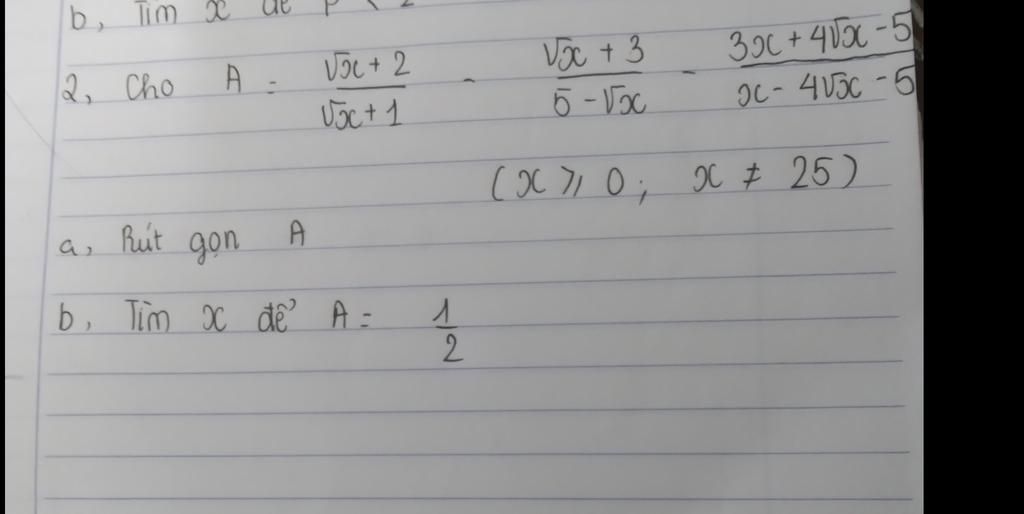 b, Tìm x để P < 2
2, Cho A = \frac{\sqrt{x}+2}{\sqrt{x}+1} - \frac{\sqrt{x}+3}{5-\sqrt{x}} - \frac{3x+4\sqrt{x}-5}{x-4\sqrt{x}-5}
(x ⩾ 0; x ≠ 25)
a, Rút gọn A
b, Tìm x để A = \frac{1}{2}